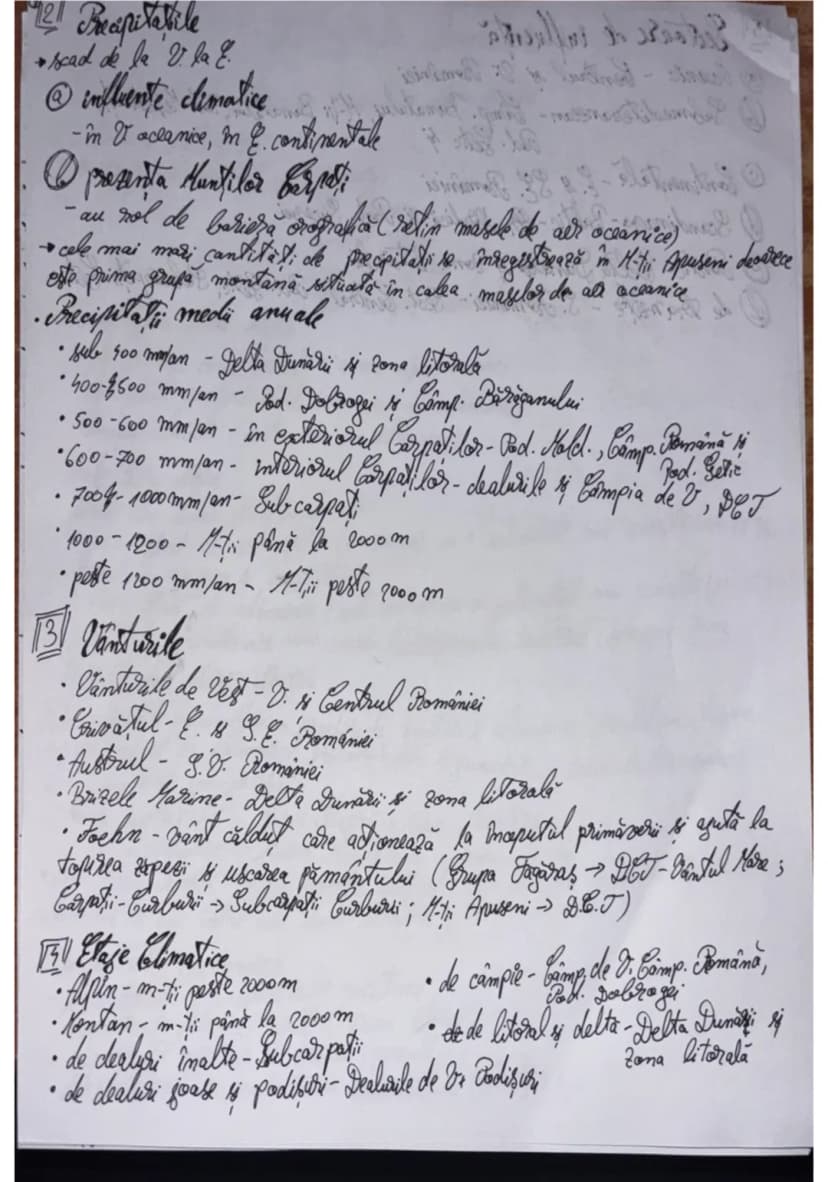 2 Precipitațiile
→ scad de la V. la E.
ⓐ influențe climatice
- în V oceanice, în E. continentale
ⓑ prezența Munților Carpați
- au rol de barieră orografică (rețin masele de aer oceanice)
→ cele mai mari cantități de precipitații se înregistrează în M-ții Apuseni deoarece
este prima grupă montană situată în calea maselor de aer oceanice
• Precipitații medii anuale
• sub 400 mm/an - Delta Dunării și zona litorală
• 400-500 mm/an - Pod. Dobrogei și Câmp. Bărăganului
• 500-600 mm/an - în exteriorul Carpaților - Pod. Mold., Câmp. Română și
Pod. Getic
• 600-700 mm/an - interiorul Carpaților - dealurile și Câmpia de V, DCT
• 700-1000 mm/an - Subcarpați
• 1000-1200 - M-ții până la 2000 m
• peste 1200 mm/an - M-ții peste 2000 m
3 Vânturile
• Vânturile de Vest - V. și Centrul României
• Crivățul - E. și S.E. României
• Austrul - S.V. României
• Brizele Marine - Delta Dunării și zona litorală
• Foehn - vânt călduț care acționează la începutul primăverii și ajută la
topirea zăpezii și uscarea pământului (Grupa Făgăraș → DCT - Vântul Mare;
Carpații Curburii → Subcarpații Curburii; M-ții Apuseni → D.C.T)
4 Etaje Climatice
• Alpin - m-ții peste 2000 m
• Montan - m-ții până la 2000 m
• de dealuri înalte - Subcarpații
• de dealuri joase și podișuri - Dealurile de V. Podișuri
• de câmpie - Câmp. de V. Câmp. Română,
Pod. Dobrogei
• de litoral și deltă - Delta Dunării și
zona litorală